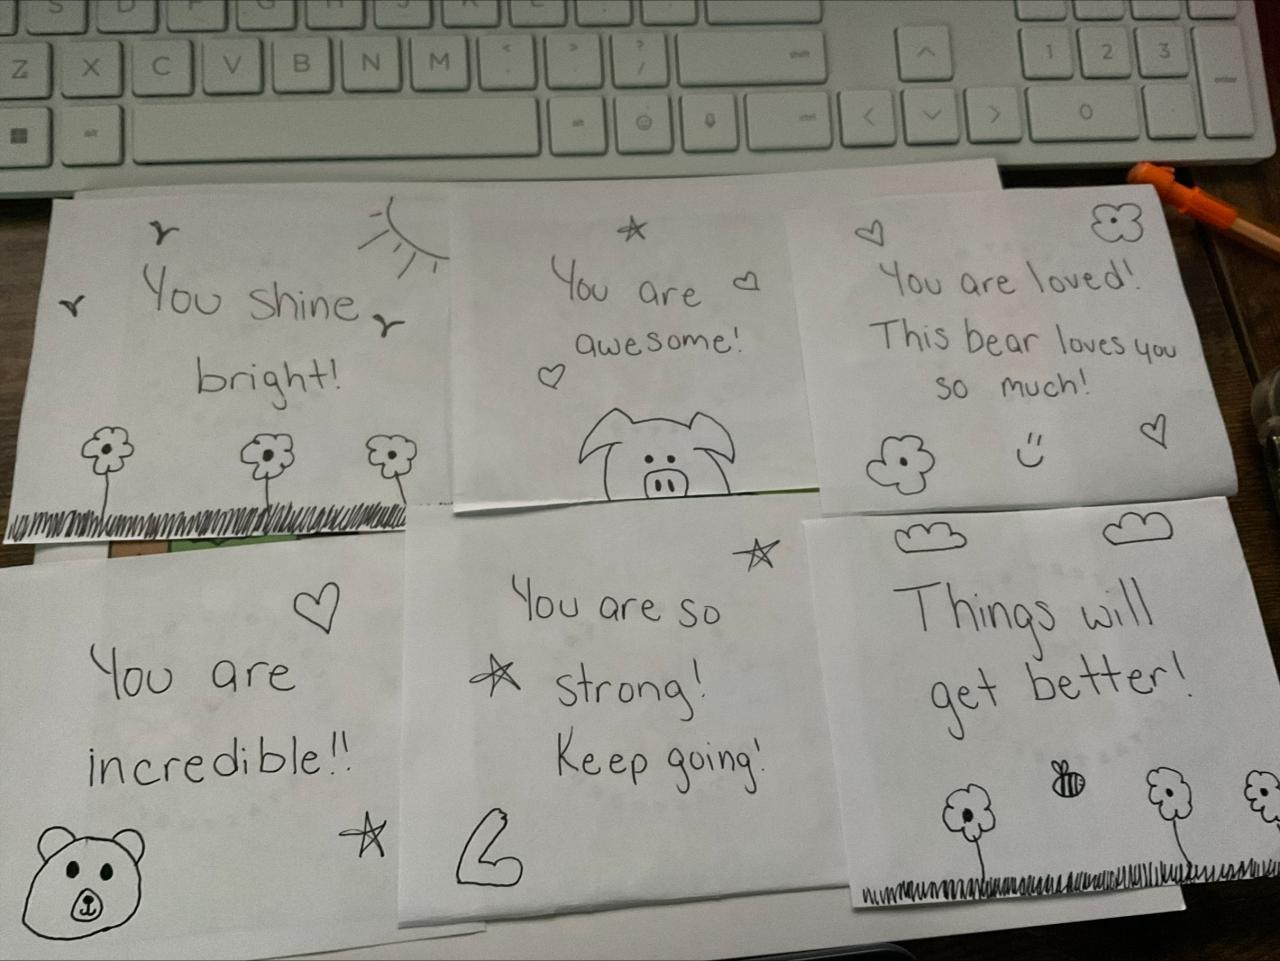 S D F G H J K L
Z X C V B N M < > ? / shift ^ 1 2 3 enter
alt alt ctrl < > 0
You shine
bright!
You are
awesome!
You are loved!
This bear loves you
so much!
You are
incredible!!
You are so
strong!
Keep going!
Things will
get better!